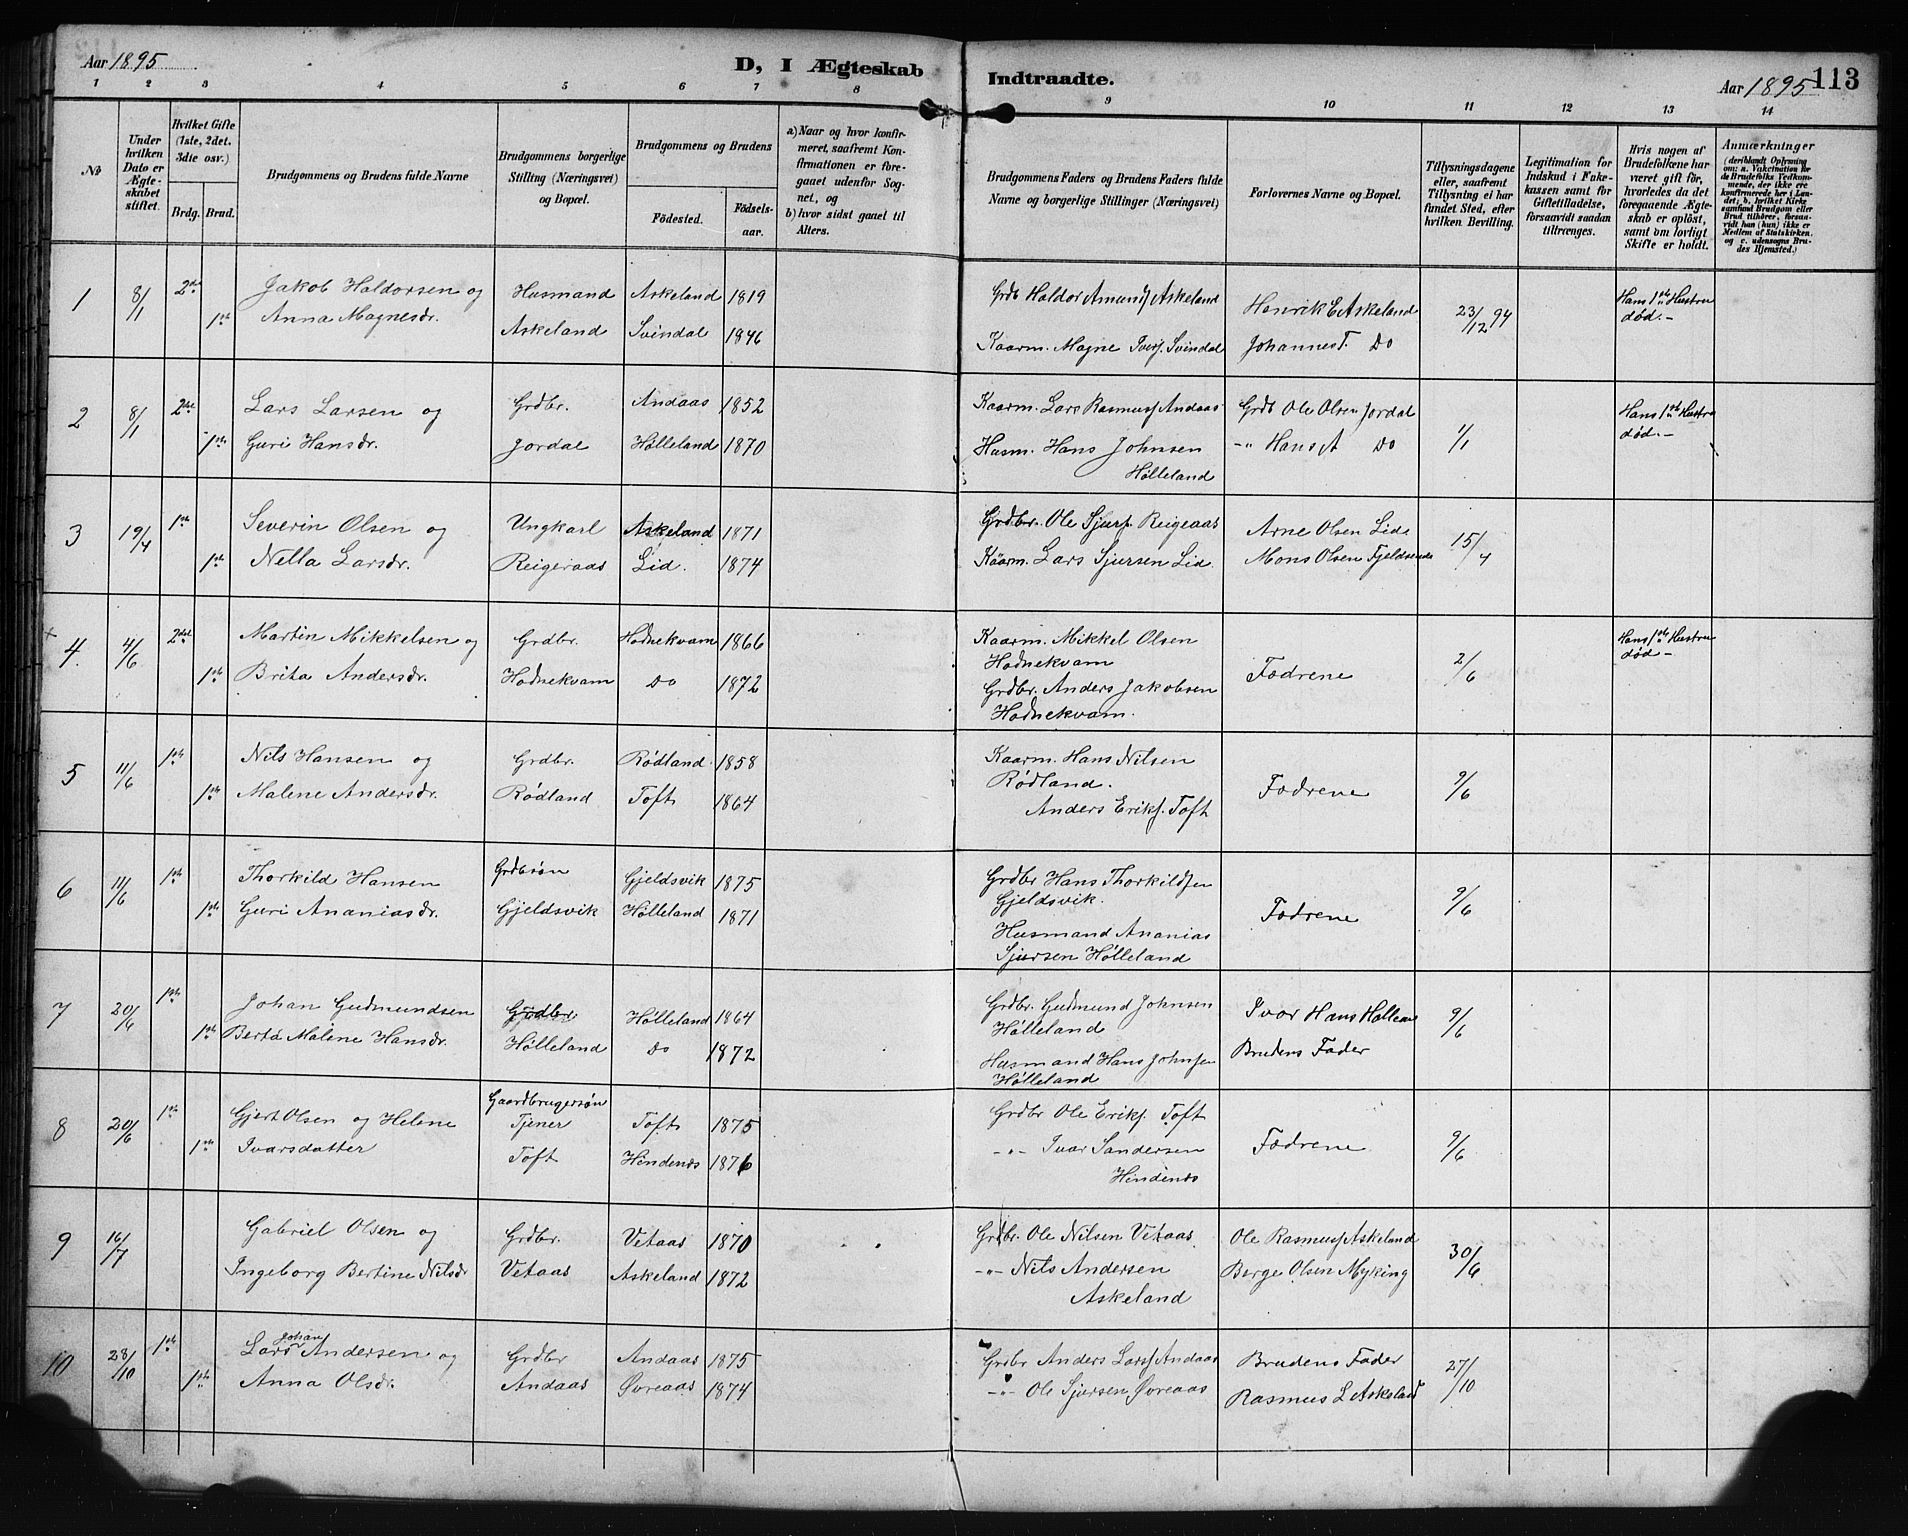 Aar 1895
D, I Ægteskab Indtraadte.
Aar 1895 113
1 2 3 4 5 6 7 8 9 10 11 12 13 14
No
Under hvilken Dato er Ægteskabet stiftet.
Hvilket Gifte (1ste, 2det, 3die osv.)
Brdg. Brud.
Brudgommens og Brudens fulde Navne
Brudgommens borgerlige Stilling (Næringsvei) og Bopæl.
Brudgommens og Brudens
Fødested. Fødselsaar.
a) Naar og hvor konfirmeret, saafremt Konfirmationen er foregaaet udenfor Sognet, og
b) hvor sidst gaaet til Alters.
Brudgommens Faders og Brudens Faders fulde Navne og borgerlige Stillinger (Næringsvei)
Forlovernes Navne og Bopæl.
Tillysningsdagene eller, saafremt Tillysning ei har fundet Sted, efter hvilken Bevilling.
Legitimation for Indskud i Enkekassen samt for Giftetilladelse, forsaavidt saadan tiltrænges.
Hvis nogen af Brudefolkene har været gift før, hvorledes da det foregaaende Ægteskab er opløst, samt om lovligt Skifte er holdt.
Anmærkninger
1 8/1 2det Jakob Haldorsen og Husmand Askeland 1819 Grdb Haldor Amunds Askeland Henrik E Askeland 23/12 94 Hans 1ste Hustru død.-
1ste Anna Magnesdr. Askeland Svindal 1846 Kaarm. Magne Ivers. Svindal Johannes T. Do
2 8/1 2det Lars Larsen og Grdbr. Andaas 1852 Kaarm. Lars Rasmuss Andaas Grdb Ole Olsen Jordal 1/1 Hans 1ste Hustru død.-
1ste Guri Hansdr. Jordal Hølleland 1870 Husm. Hans Johnsen Hølleland -"- Hans A Do
3 19/4 1ste Severin Olsen og Ungkarl Askeland 1871 Grdbr. Ole Sjurs. Reigeraas Arne Olsen Lid 15/4
1ste Nella Larsdr. Reigeraas Lid. 1874 Kaarm. Lars Sjursen Lid. Mons Olsen Fjeldsende
4. 4/6 2det Martin Mikkelsen og Grdbr. Hodnekvam 1866 Kaarm. Mikkel Olsen Hodnekvam Fædrene 2/6 Hans 1ste Hustru død-
1ste Brita Andersdr. Hodnekvam Do 1872 Grdbr. Anders Jakobsen Hodnekvam.
5 11/6 1ste Nils Hansen og Grdbr. Rødland 1858 Kaarm. Hans Nilsen Rødland. Fædrene 9/6
1ste Malene Andersdr. Rødland Toft 1864 Anders Eriks. Toft
6 11/6 1ste Thorkild Hansen Grdbrsøn Gjeldsvik 1875 Grdbr Hans Thorkildsen Gjeldsvik. Fædrene 9/6
1ste Guri Ananiasdr. Gjeldsvik Hølleland 1871 Husmand Ananias Sjursen Hølleland
7 20/6 1ste Johan Gudmundsen Grdbr Hølleland 1864 Grdbr. Gudmund Johnsen Hølleland Ivar Hans 9/6
1ste Berta Malene Hansdr. Hølleland Do 1872 Husmand Hans Johnsen Hølleland Brudens Fader
8 20/6 1ste Gjert Olsen og Helene Gaardbrugersøn Tjener Toft 1875 Grdbr Ole Eriks. Toft Fædrene 9/6
1ste Ivarsdatter Toft Hindenes 1876 -"- Ivar Sandersen Hindenes
9 16/7 Gabriel Olsen og Grdbr. Vetaas 1870 Grdbr. Ole Nilsen Vetaas Ole Rasmuss Askeland 30/6
Ingeborg Bertine Nilsdr Vetaas Askeland 1872 -"- Nils Andersen Askeland Børge Olsen Myking
10 28/10 1ste Lars Johan Andersen og Grdbr Andaas 1875 Grdbr Anders Lars Andaas Brudens Fader 27/10
1ste Anna Olsdr. Andaas Øvreaas 1874 -"- Ole Sjursen Øvreaas Rasmus L Askeland